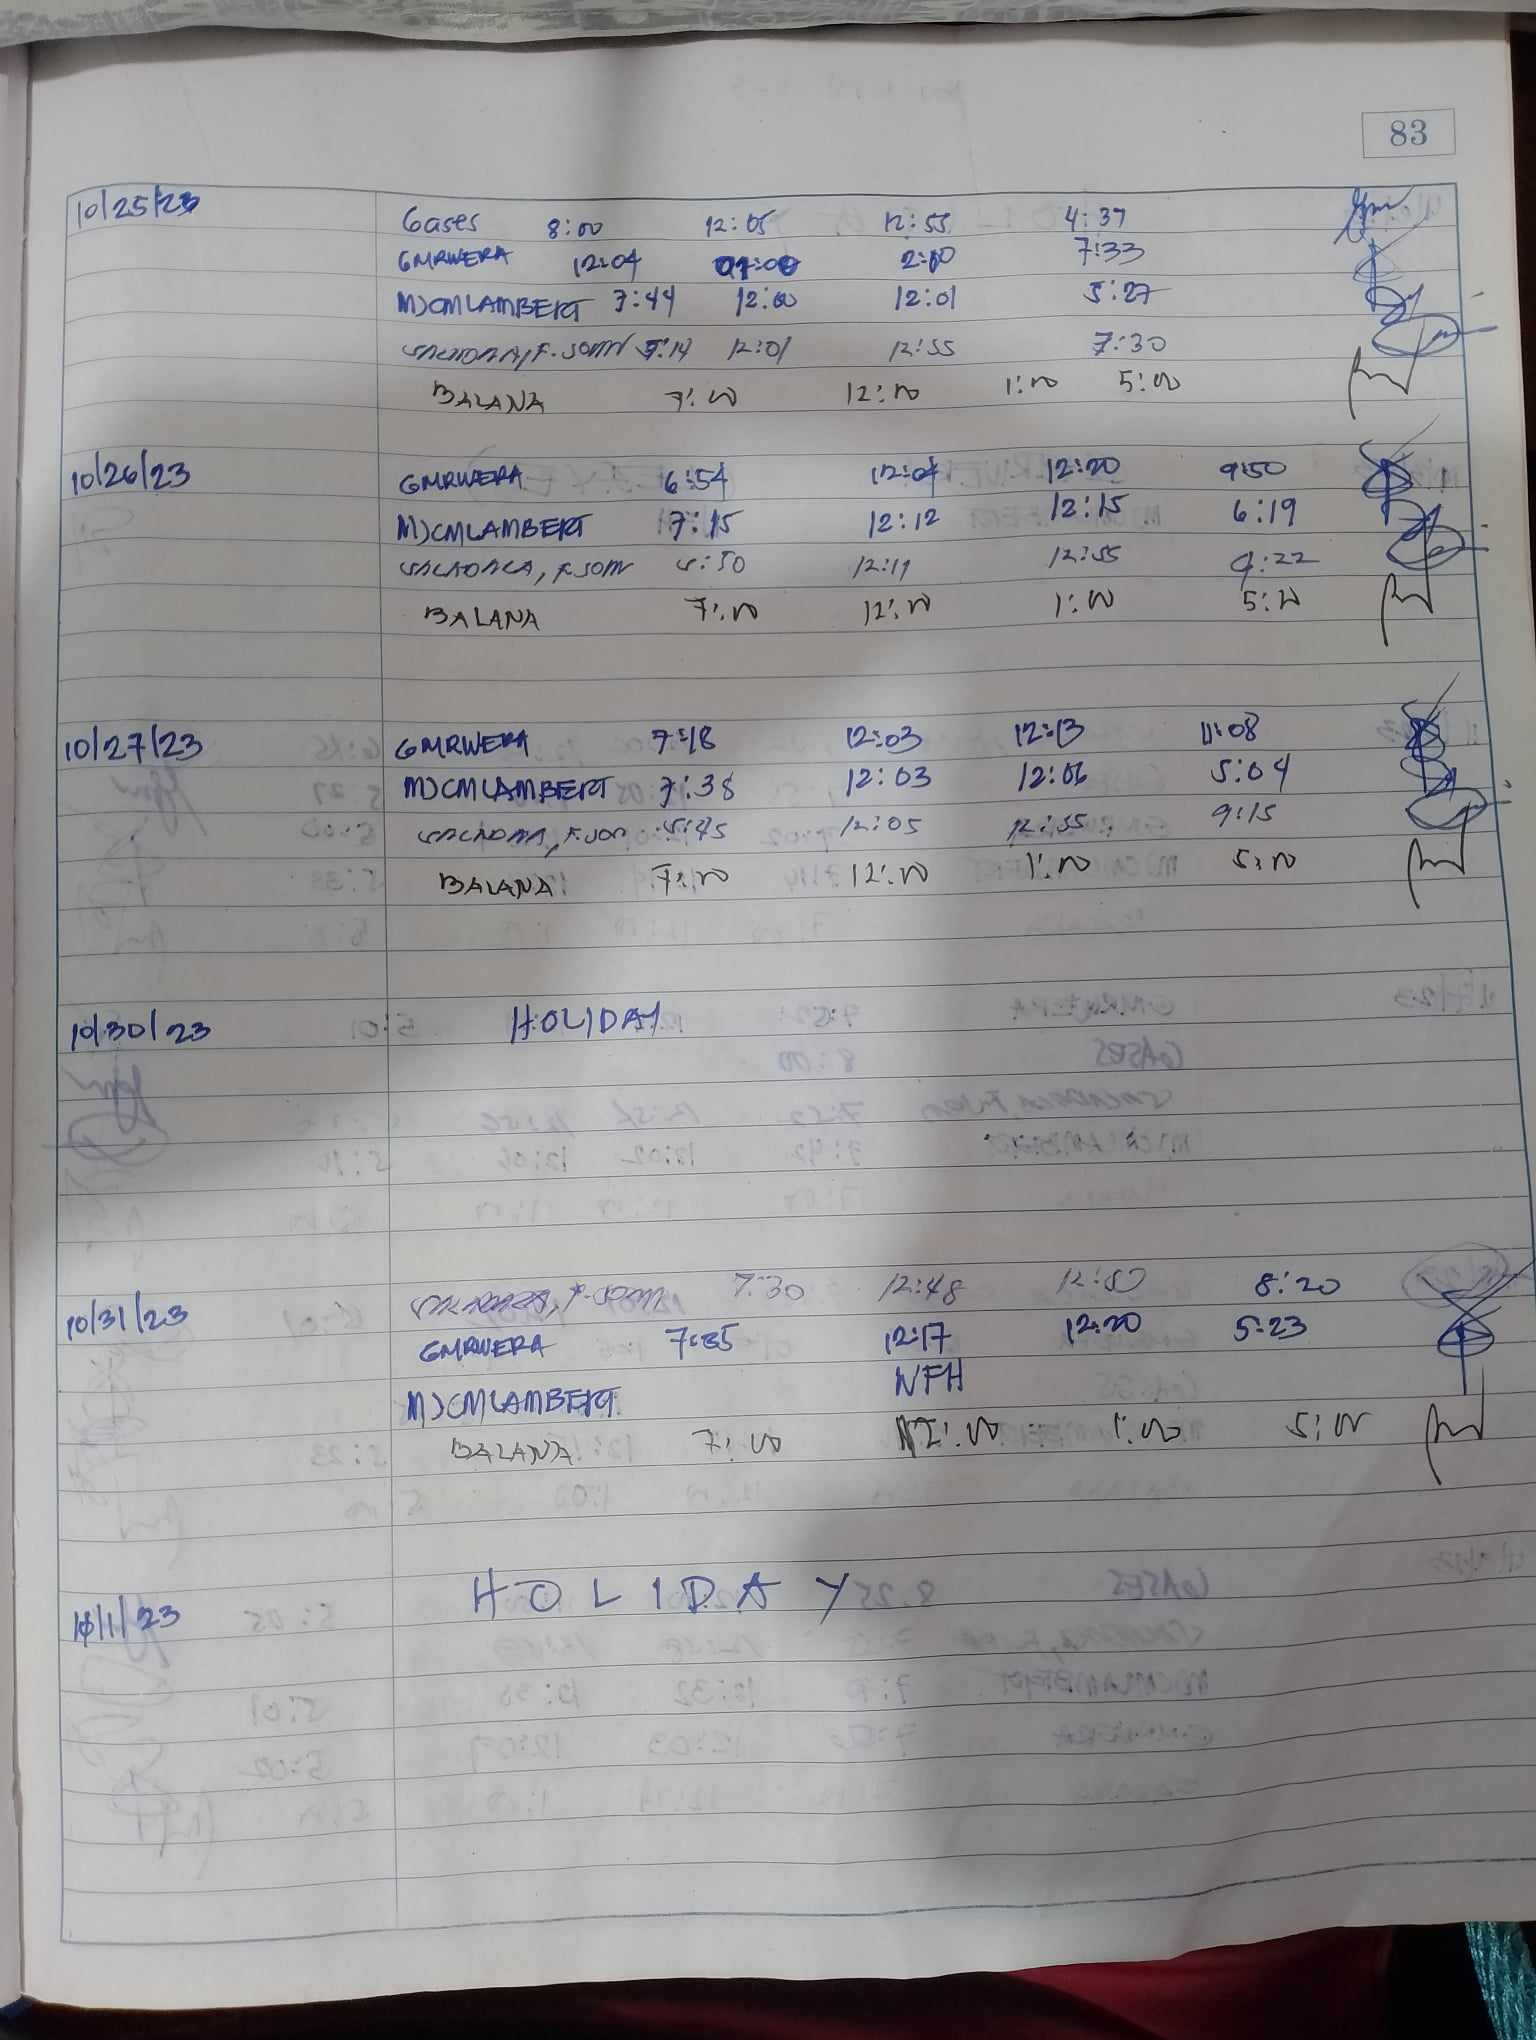 83
10/25/23
Gases 8:00 12:05 12:55 4:37
GMRWERA 12:04 2:00 7:33
MJCMLAMBERT 7:44 12:00 12:01 5:27
12:01 12:55 7:30
BALANA 7:00 12:00 1:00 5:00
10/26/23 GMRWERA 6:54 12:04 12:20 9:50
MJCMLAMBERT 7:15 12:12 12:15 6:19
12:55 9:22
BALANA 7:00 12:00 1:00 5:00
10/27/23 GMRWERA 7:18 12:03 12:13 11:08
MJCMLAMBERT 7:38 12:03 12:06 5:04
5:45 12:05 12:55 9:15
BALANA 7:00 12:00 1:00 5:00
10/30/23 HOLIDAY
10/31/23 7:30 12:48 12:50 8:20
GMRWERA 7:35 12:17 12:20 5:23
MJCMLAMBERT NFH
BALANA 7:00 12:00 1:00 5:00
11/1/23 HOLIDAY